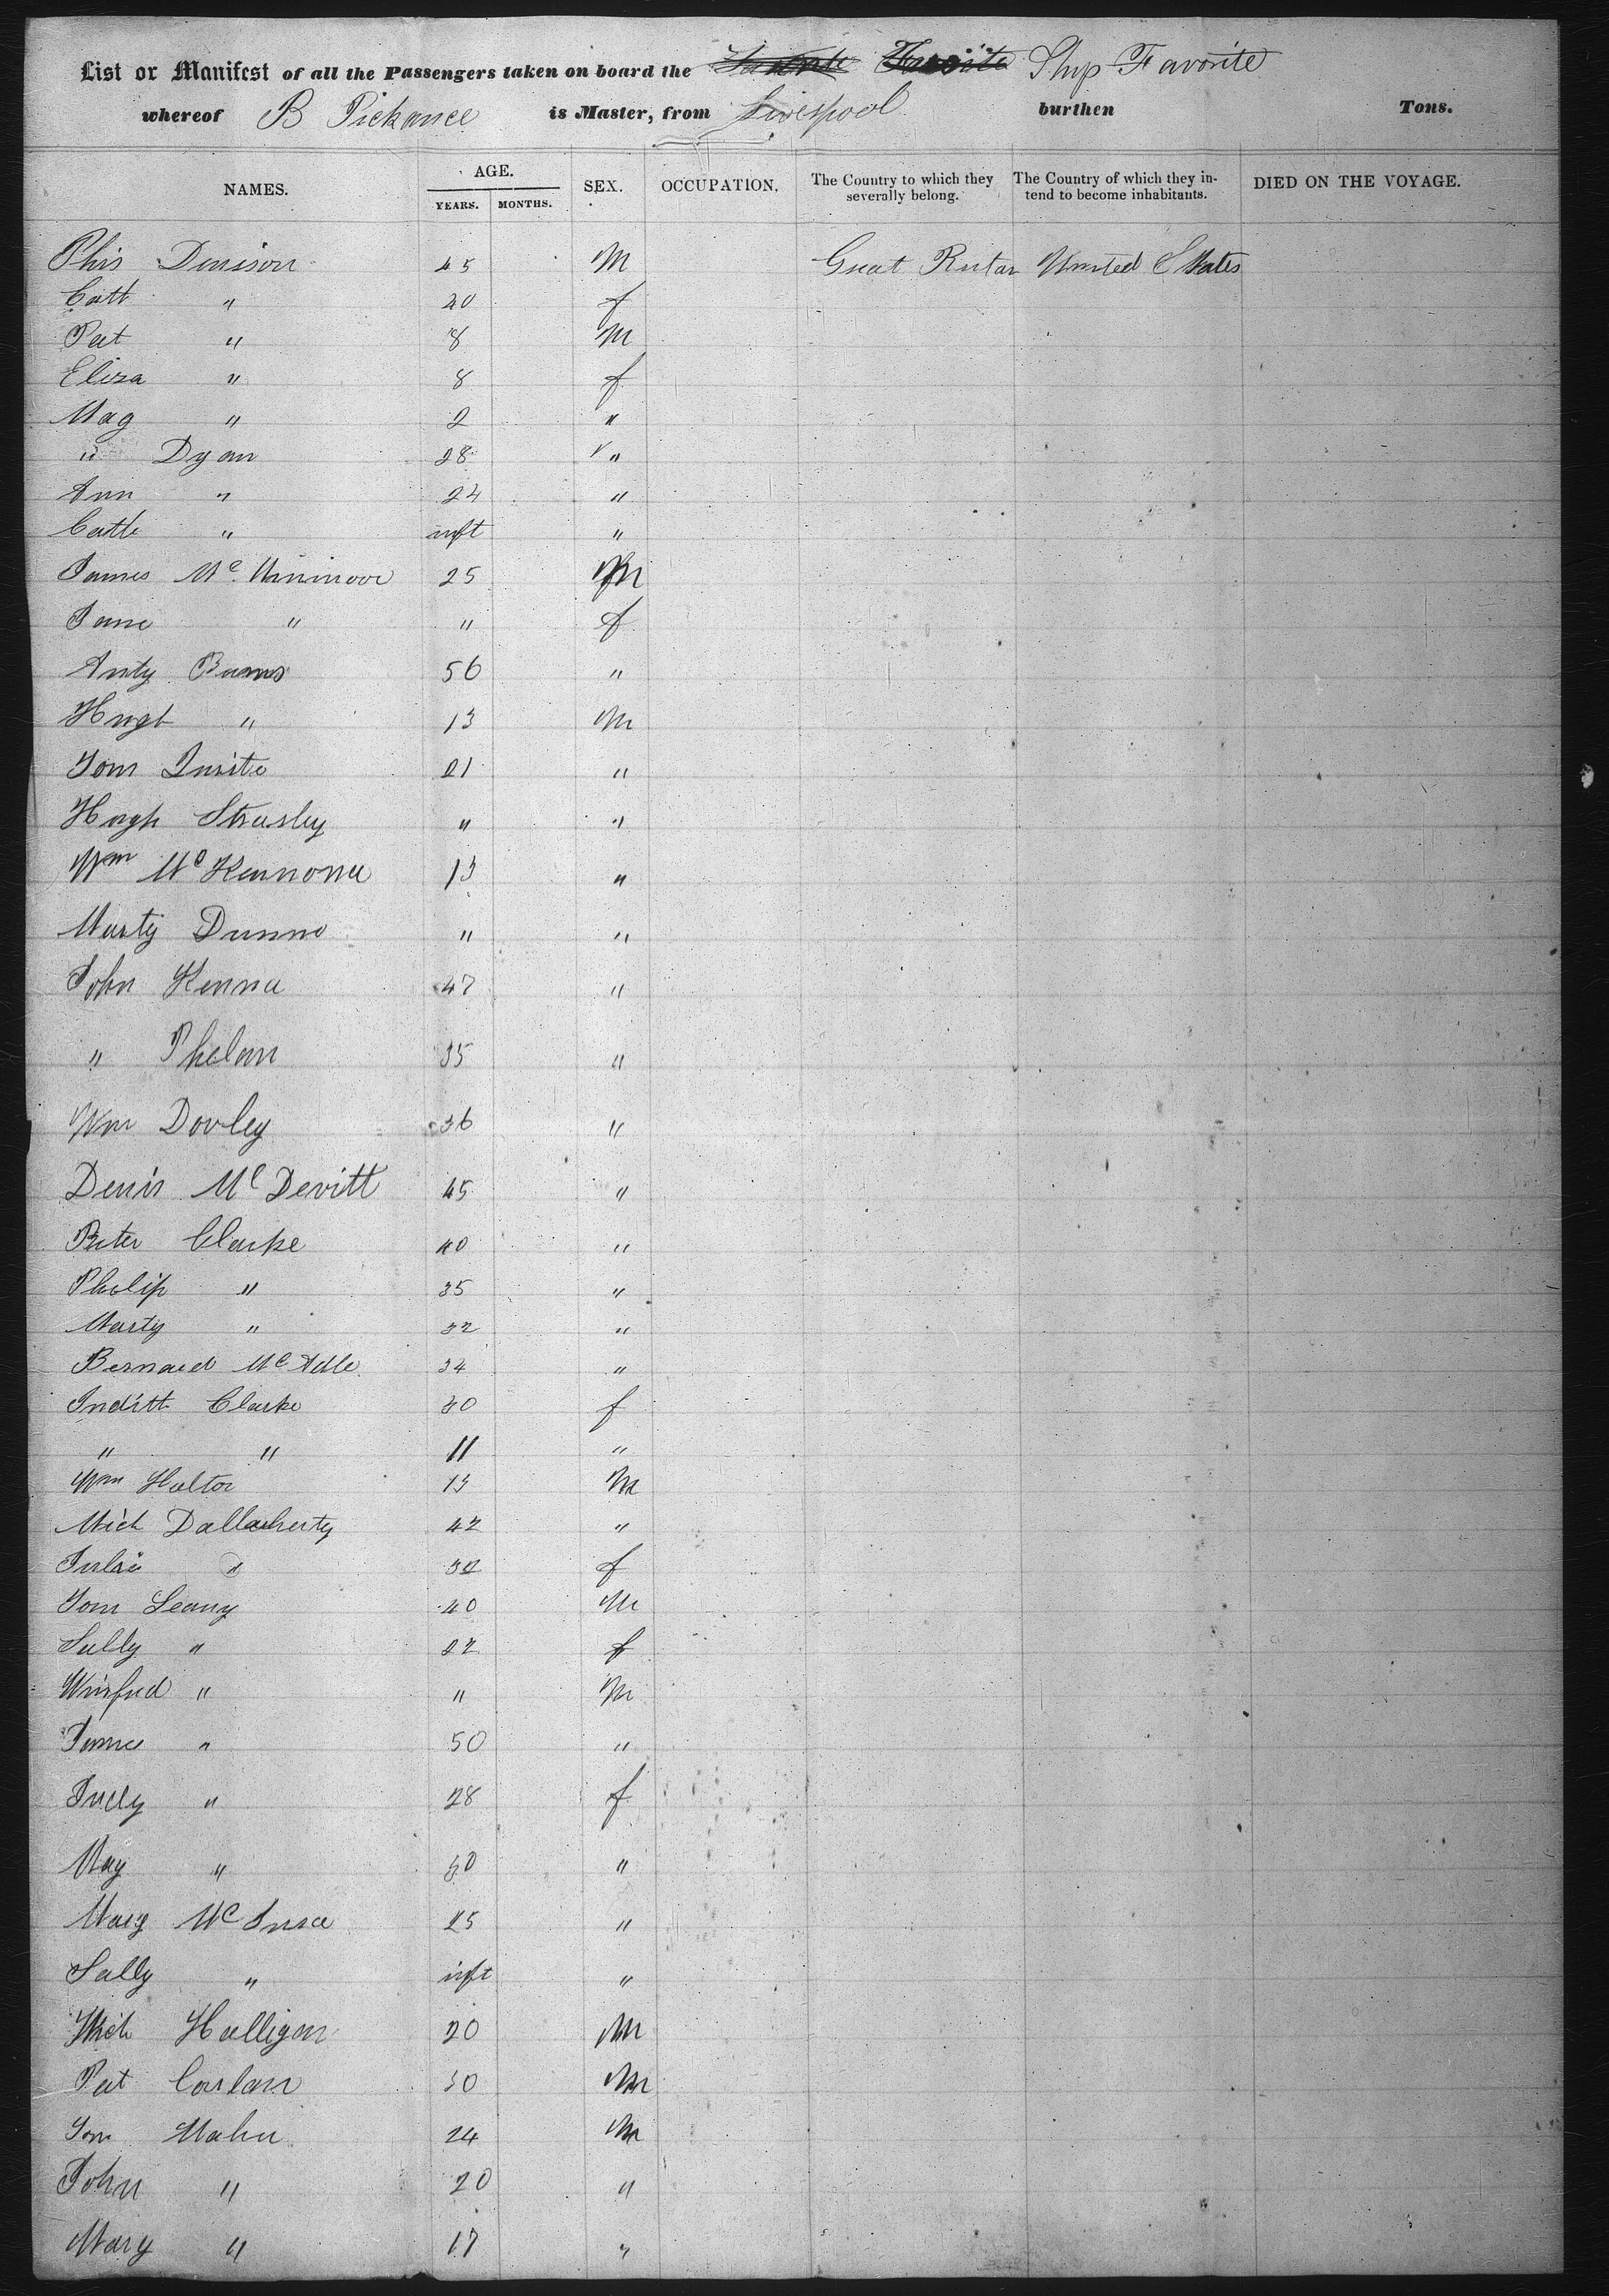 List or Manifest of all the Passengers taken on board the Ship Favorite
whereof B Pickance is Master, from Liverpool burthen Tons.
NAMES. AGE. YEARS. MONTHS. SEX. OCCUPATION. The Country to which they severally belong. The Country of which they intend to become inhabitants. DIED ON THE VOYAGE.
Phis Denison 45 M Great Britan United States
Cath " 40 f
Pat " 8 M
Eliza " 8 f
Mag " 2 "
" Dyan 28 "
Ann " 24 "
Cath " inft "
James Mc 25 M
Jane " " f
Anty Burns 56 "
Hugh " 13 M
Tom 21 "
Hugh " "
Wm Mc 13 "
Marty Dunne " "
John Kenna 47 "
" Phelan 35 "
Wm Dooley 36 "
Denis Mc Devitt 45 "
Peter Clarke 40 "
Philip " 35 "
Marty " 32 "
Bernard Mc Adle 34 "
Judith Clarke 30 f
" " 11 "
Wm Halton 13 M
Mich Dallaherty 42 "
Julia " 32 f
Tom Leany 40 M
Sally " 22 f
Winfred " " M
James " 50 "
Judy " 28 f
May " 30 "
Mary Mc 25 "
Sally " inft "
Mich Halligan 20 M
Pat Conlan 30 M
Tom Maher 24 M
John " 20 "
Mary " 17 "